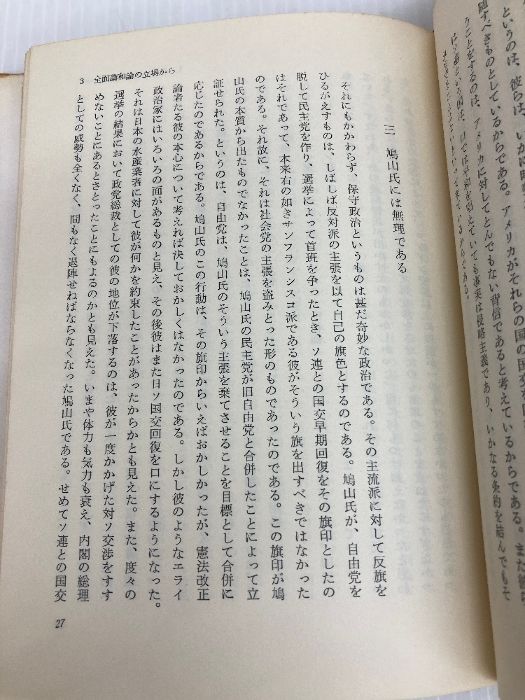 というのは、彼らは、
随すべきものとしているからである。アメリカがそれらの国の国民を
うことをするのは、アメリカに対してとんでもない背信であると考えているからである。
口では平和を唱えていても真実は侵略主義であり、いかなる条約を結んでもそ
3 全面講和論の立場から
三 鳩山氏には無理である
それにもかかわらず、保守政治というものは甚だ奇妙な政治である。その主流派に対して反旗を
ひるがえすものは、しばしば反対派の主張を以て自己の旗色とするのである。鳩山氏が、自由党を
脱して民主党を作り、選挙によって首班を争ったとき、ソ連との国交早期回復をその旗印としたの
はそれであって、本来右の如きサンフランシスコ派である彼がそういう旗を出すべきではなかった
のである。それ故に、それは社会党の主張を盗みとった形のものであったのである。この旗印が鳩
山氏の本質から出たものでなかったことは、鳩山氏の民主党が旧自由党と合併したことによって立
証せられた。というのは、自由党は、鳩山氏のそういう主張を棄てさせることを目標として合併に
応じたのであるからである。鳩山氏のこの行動は、その旗印からいえばおかしかったが、憲法改正
論者たる彼の本心について考えれば決しておかしくはなかったのである。しかし彼のようなエライ
政治家にはいろいろの面があるものと見え、その後彼はまた日ソ国交回復を口にするようになった。
それは日本の水産業者に対して彼が何かを約束したことがあったからかとも見えた。また、度々の
選挙の結果において政党総裁としての彼の地位が下落するのは、彼が一度かかげた対ソ交渉をすす
めないことにあるとさとったことにもよるのかとも見えた。いまや体力も気力も衰え、内閣の総理
としての威勢も全くなく、間もなく退陣せねばならなくなった鳩山氏である。せめてソ連との国交
27